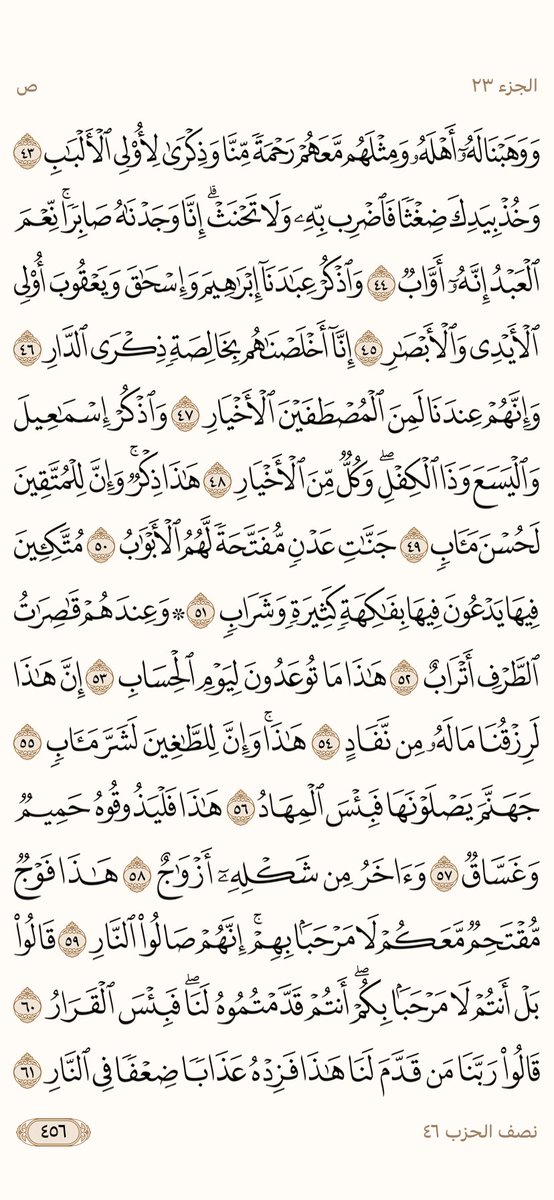 الجزء ٢٣
ص
وَوَهَبْنَا لَهُۥٓ أَهْلَهُۥ وَمِثْلَهُم مَّعَهُمْ رَحْمَةً مِّنَّا وَذِكْرَىٰ لِأُو۟لِى ٱلْأَلْبَٰبِ ٤٣
وَخُذْ بِيَدِكَ ضِغْثًا فَٱضْرِب بِّهِۦ وَلَا تَحْنَثْ ۗ إِنَّا وَجَدْنَٰهُ صَابِرًا ۚ نِّعْمَ
ٱلْعَبْدُ إِنَّهُۥٓ أَوَّابٌ ٤٤ وَٱذْكُرْ عِبَٰدَنَآ إِبْرَٰهِيمَ وَإِسْحَٰقَ وَيَعْقُوبَ أُو۟لِى
ٱلْأَيْدِى وَٱلْأَبْصَٰرِ ٤٥ إِنَّآ أَخْلَصْنَٰهُم بِخَالِصَةٍ ذِكْرَى ٱلدَّارِ ٤٦
وَإِنَّهُمْ عِندَنَا لَمِنَ ٱلْمُصْطَفَيْنَ ٱلْأَخْيَارِ ٤٧ وَٱذْكُرْ إِسْمَٰعِيلَ
وَٱلْيَسَعَ وَذَا ٱلْكِفْلِ ۖ وَكُلٌّ مِّنَ ٱلْأَخْيَارِ ٤٨ هَٰذَا ذِكْرٌ ۚ وَإِنَّ لِلْمُتَّقِينَ
لَحُسْنَ مَـَٔابٍ ٤٩ جَنَّٰتِ عَدْنٍ مُّفَتَّحَةً لَّهُمُ ٱلْأَبْوَٰبُ ٥٠ مُتَّكِـِٔينَ
فِيهَا يَدْعُونَ فِيهَا بِفَٰكِهَةٍ كَثِيرَةٍ وَشَرَابٍ ٥١ ۞ وَعِندَهُمْ قَٰصِرَٰتُ
ٱلطَّرْفِ أَتْرَابٌ ٥٢ هَٰذَا مَا تُوعَدُونَ لِيَوْمِ ٱلْحِسَابِ ٥٣ إِنَّ هَٰذَا
لَرِزْقُنَا مَا لَهُۥ مِن نَّفَادٍ ٥٤ هَٰذَا ۚ وَإِنَّ لِلطَّٰغِينَ لَشَرَّ مَـَٔابٍ ٥٥
جَهَنَّمَ يَصْلَوْنَهَا فَبِئْسَ ٱلْمِهَادُ ٥٦ هَٰذَا فَلْيَذُوقُوهُ حَمِيمٌ
وَغَسَّاقٌ ٥٧ وَءَاخَرُ مِن شَكْلِهِۦٓ أَزْوَٰجٌ ٥٨ هَٰذَا فَوْجٌ
مُّقْتَحِمٌ مَّعَكُمْ ۖ لَا مَرْحَبًۢا بِهِمْ ۚ إِنَّهُمْ صَالُوا۟ ٱلنَّارِ ٥٩ قَالُوا۟
بَلْ أَنتُمْ لَا مَرْحَبًۢا بِكُمْ ۖ أَنتُمْ قَدَّمْتُمُوهُ لَنَا ۖ فَبِئْسَ ٱلْقَرَارُ ٦٠
قَالُوا۟ رَبَّنَا مَن قَدَّمَ لَنَا هَٰذَا فَزِدْهُ عَذَابًا ضِعْفًا فِى ٱلنَّارِ ٦١
نصف الحزب ٤٦
٤٥٦